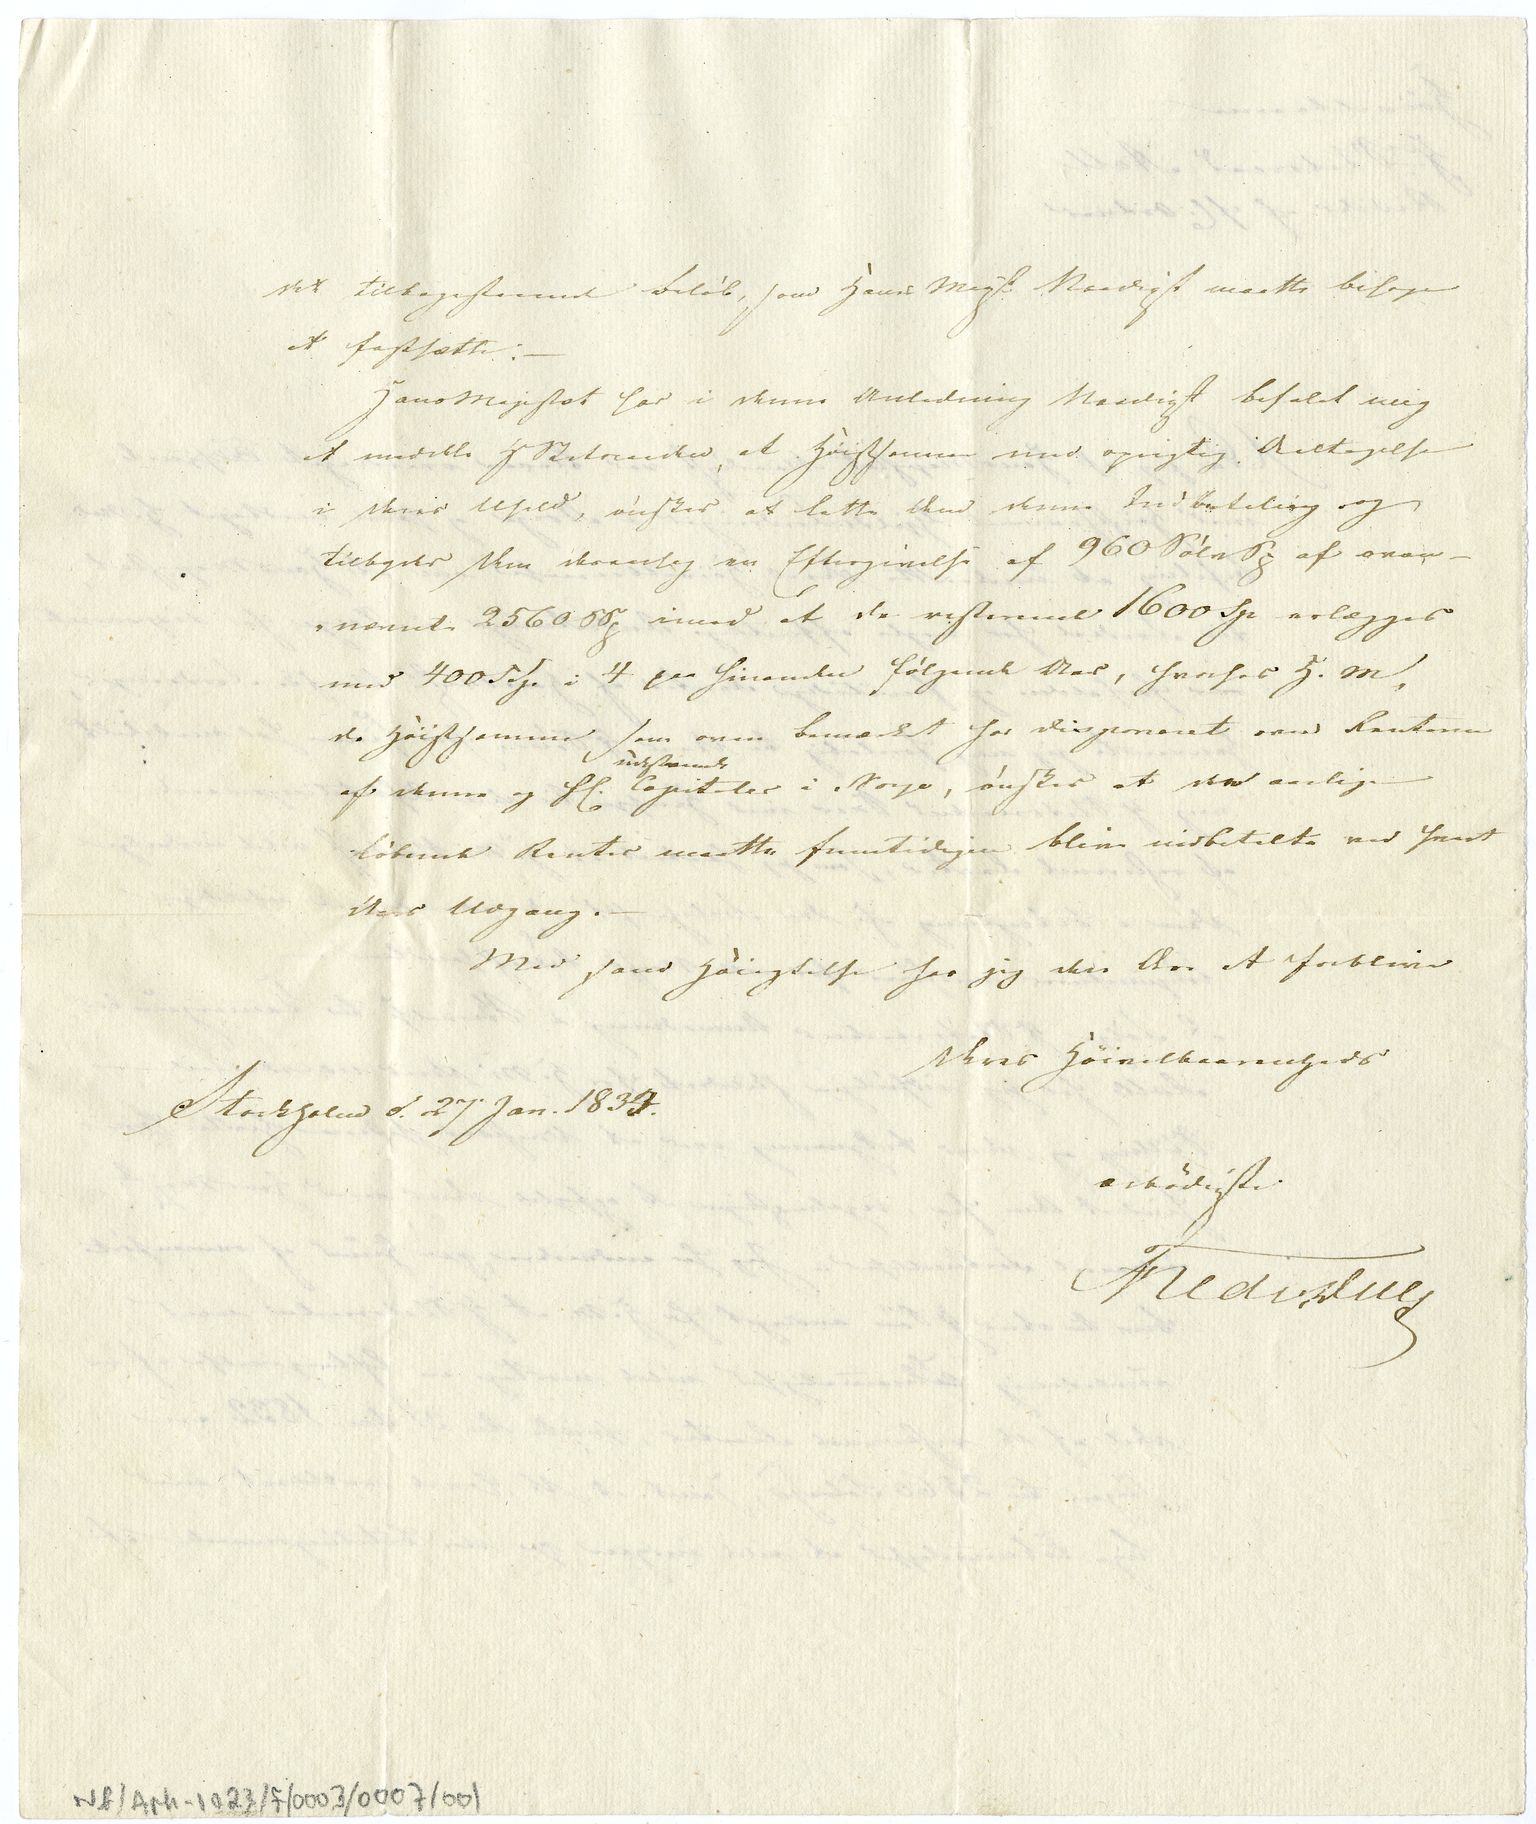 det tilbagestaaende Beløb, som Hans Majst. Naadigst maatte behage
at fastsætte: —
Hans Majestæt har i denne Anledning Naadigst befalet mig
at meddele H Statsraaden, at Høistsamme med oprigtig Deeltagelse
i deres Uheld, ønsker at lette dem denne Indbetaling og
tilbyder dem derover en Eftergivelse af 960 Sølv Sp af ovan-
nævnte 2560 SSp imod at de resterende 1600 Sp erlægges
med 400 Sp i 4 paa hinanden følgende Aar, hvorhos H. M,
da Høistsamme som oven bemærket har disponeret over Renterne
udstaaende
af denne og fl. Capitaler i Norge, ønsker at de aarlige
løbende Renter maatte fremtidigen blive indbetalte ved hvert
Aars Udgang. —
Med sand Høiagtelse har jeg den Ære at forblive
Deres Høivelbaarenheds
Stockholm d. 27 Jan. 1834.
ærbødigste
NB/Aph-1023/F/0003/0007/001